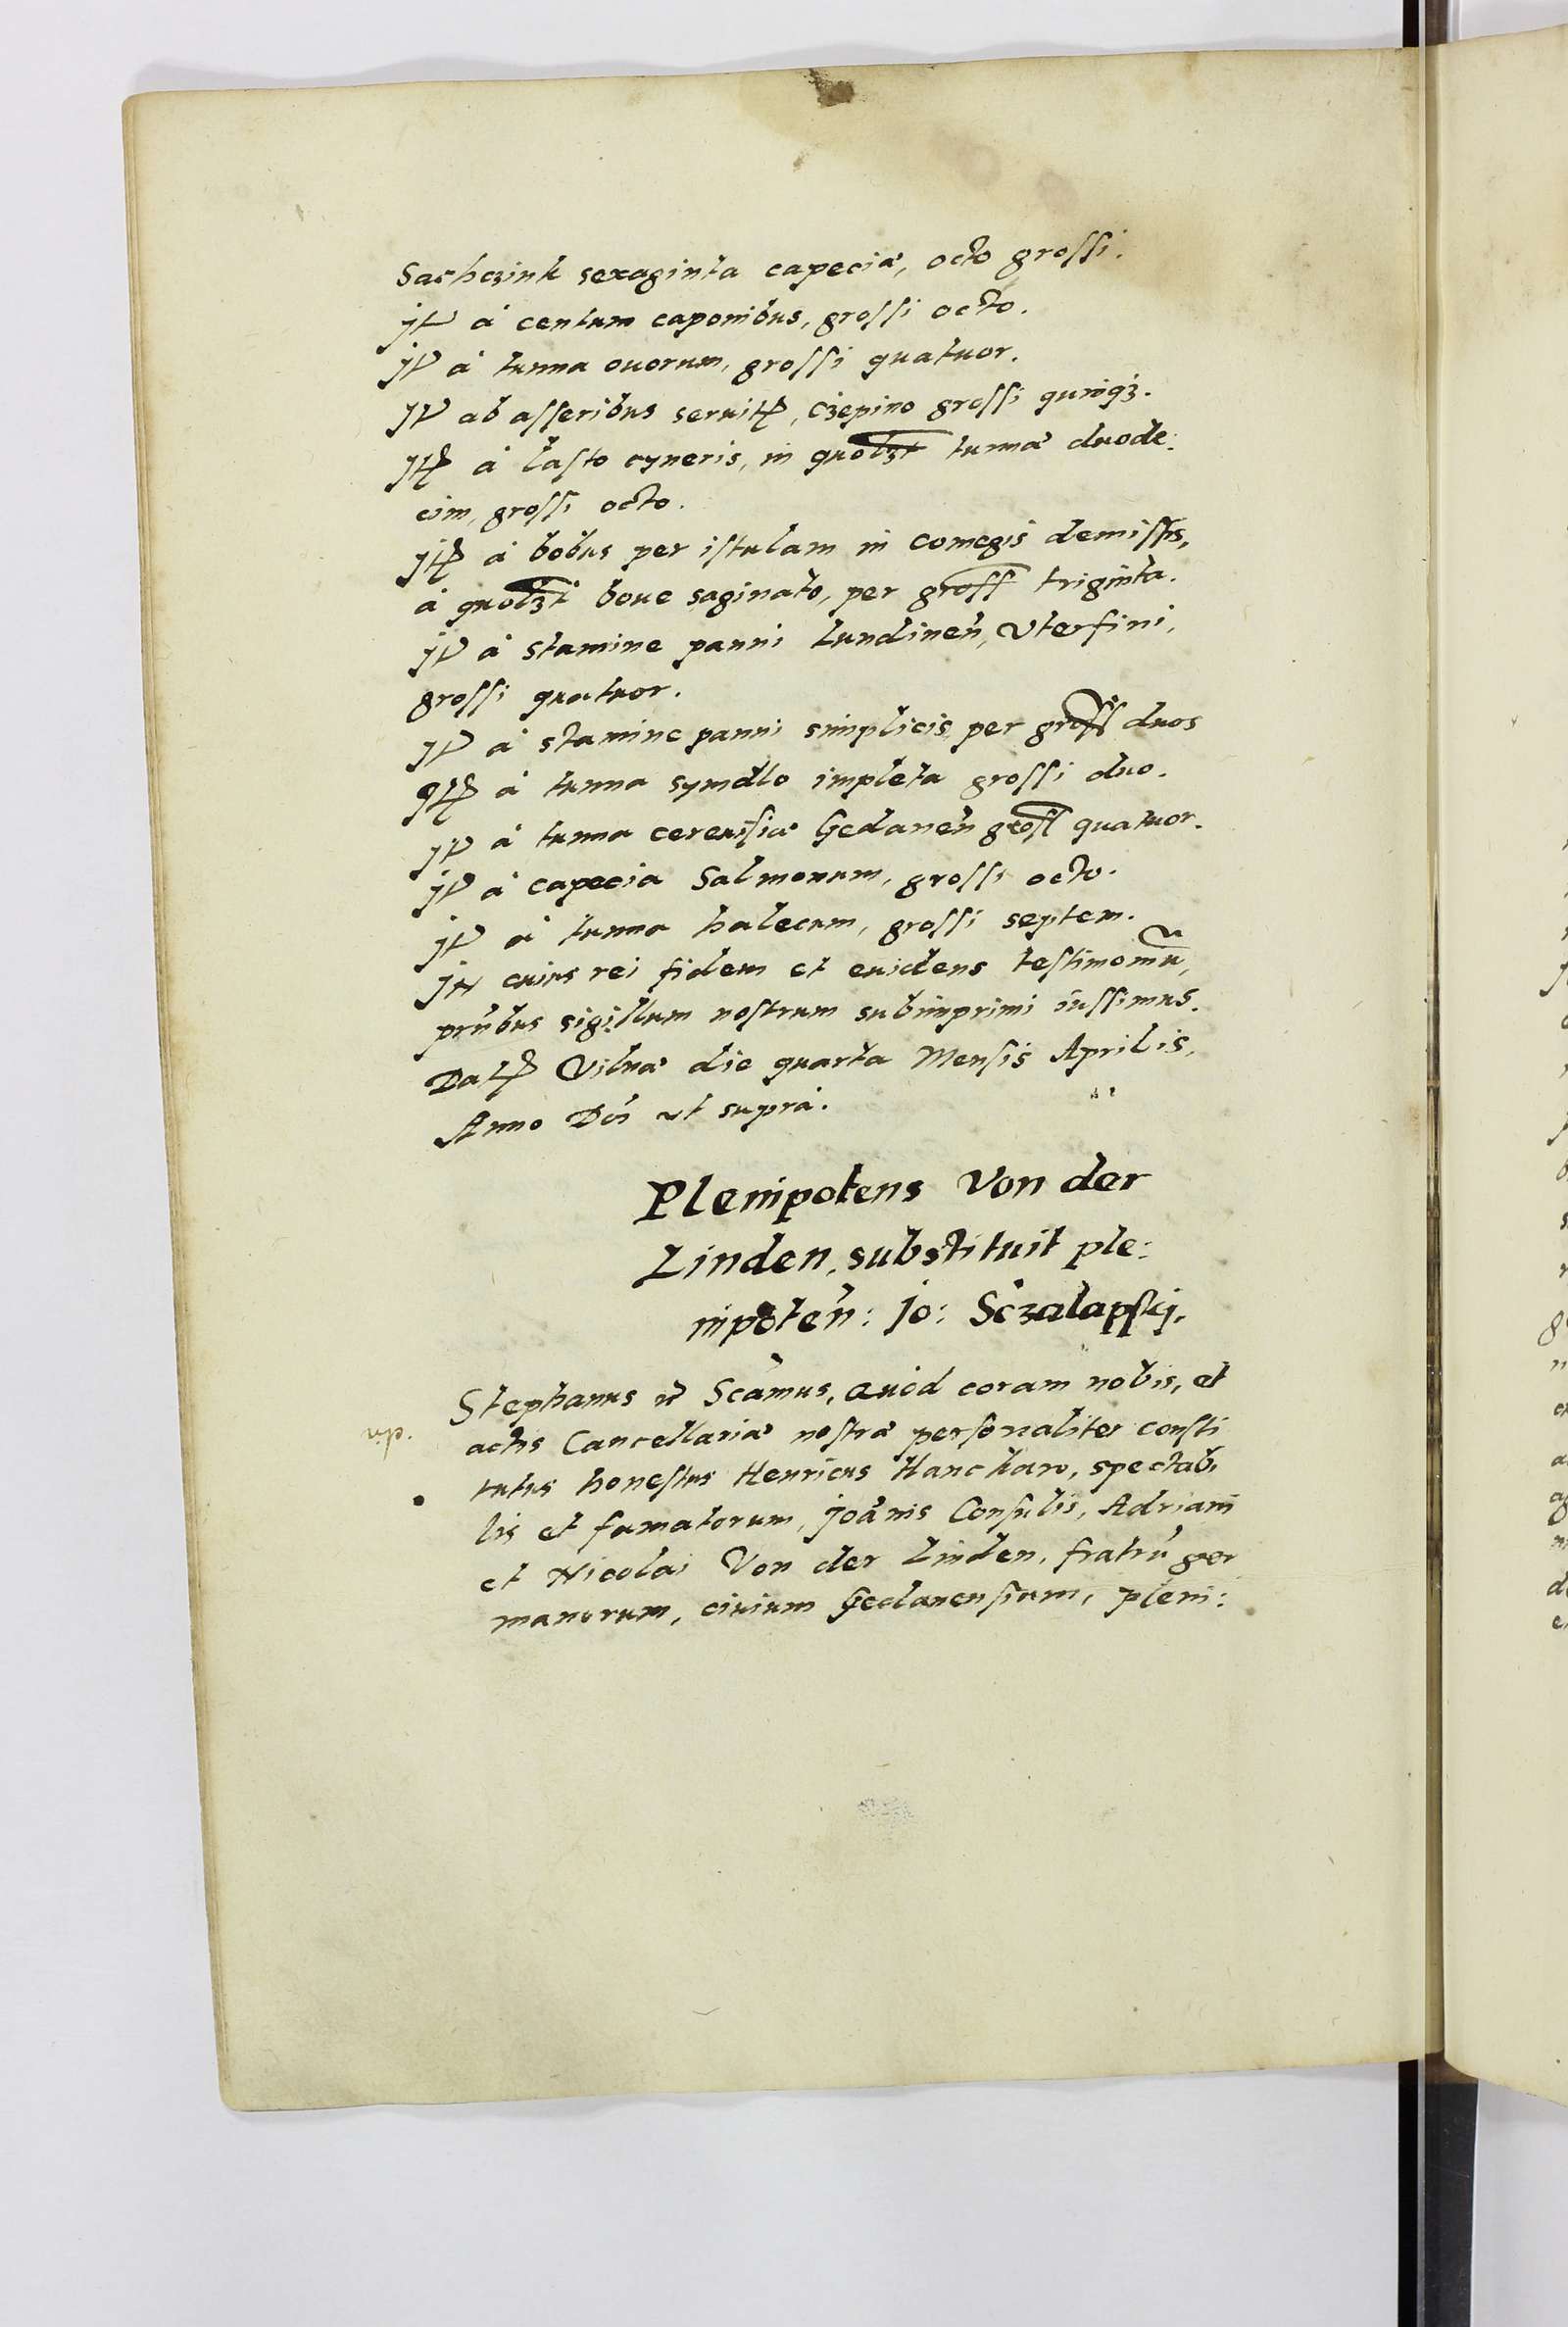 Sachczink sexaginta capeciæ, octo grossi.
Jt à centum caponibus, grossi octo.
Jt à tunna ouorum, grossi quatuor.
Jt ab asseribus seruit, Czepino grossi quinqȝ.
Jt à lasto cyneris, in quolȝt tunnæ duode:
cim, grossi octo.
Jt à bobus per istulam in comegis demissis,
à quolȝt boue saginato, per gross triginta.
Jt à stamine panni Lundinen̄, Vterfini,
grossi quatuor.
Jt à stamine panni simplicis per gross duos
Jt à tunna symdlo impleta grossi duo.
Jt à tunna cereuisiæ Gedanen̄ gross quatuor.
Jt à capecia Salmonum, grossi octo.
Jt à tunna halecum, grossi septem.
Jn cuius rei fidem et euidens testimoniū,
prn̄tibus sigillum nostrum subimprimi iussimus.
Dat Vilnæ die quarta Mensis Aprilis,
Anno Dn̄i ut suprà.
Plenipotens Von der
Linden, substituit ple:
nipoten̄: Jo: Sczalapskj.
Stephanus Scāmus, Quod coram nobis, et
actis Cancellariæ nostræ personaliter consti
tutus honestus Henricus Hanckaw, spectabi
lis et famatorum, Joānis Consulis, Adriani
et Nicolai Von der Linden, fratrū ger
manorum, ciuium Gedanensium, pleni: